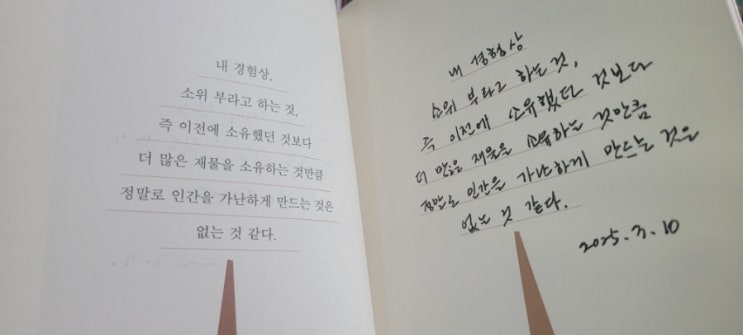 내 경험상,
소위 부라고 하는 것,
즉 이전에 소유했던 것보다
더 많은 재물을 소유하는 것만큼
정말로 인간을 가난하게 만드는 것은
없는 것 같다.
내 경험상
소위 부라고 하는 것,
즉 이전에 소유했던 것보다
더 많은 재물을 소유하는 것만큼
정말로 인간을 가난하게 만드는 것은
없는 것 같다.
2025. 3. 10